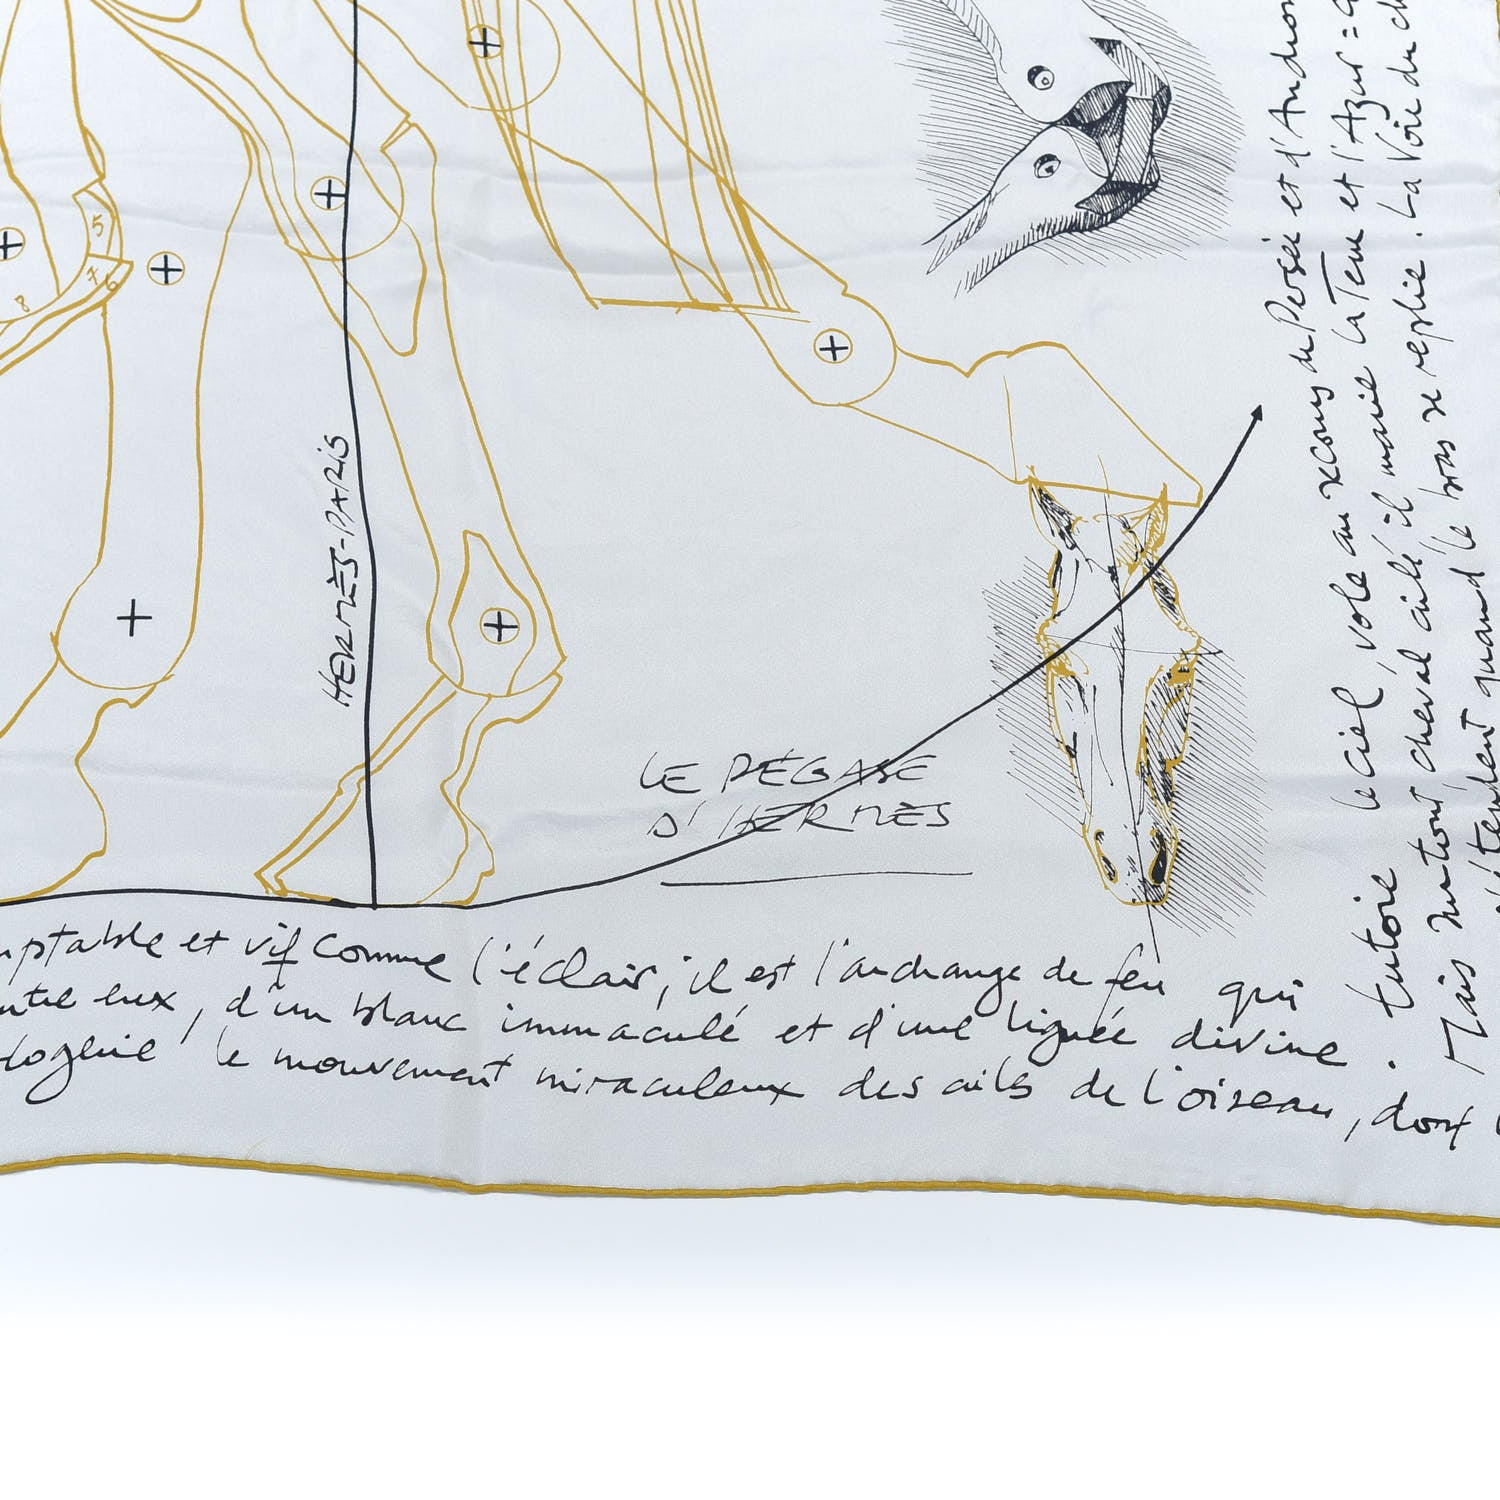 HERMÈS-PARIS
LE PÉGASE
D'HERMÈS
5
7
6
8
et vif comme l'éclair, il est l'archange de feu qui
entre eux, d'un blanc immaculé et d'une lignée divine.
le mouvement miraculeux des ailes de l'oiseau, dont
tutoie le ciel, vole au secours de Persée et d'Androm
Mais surtout, cheval ailé il marie la Terre et l'Azur =
s'étendent quand le bras se replie. La Voie du